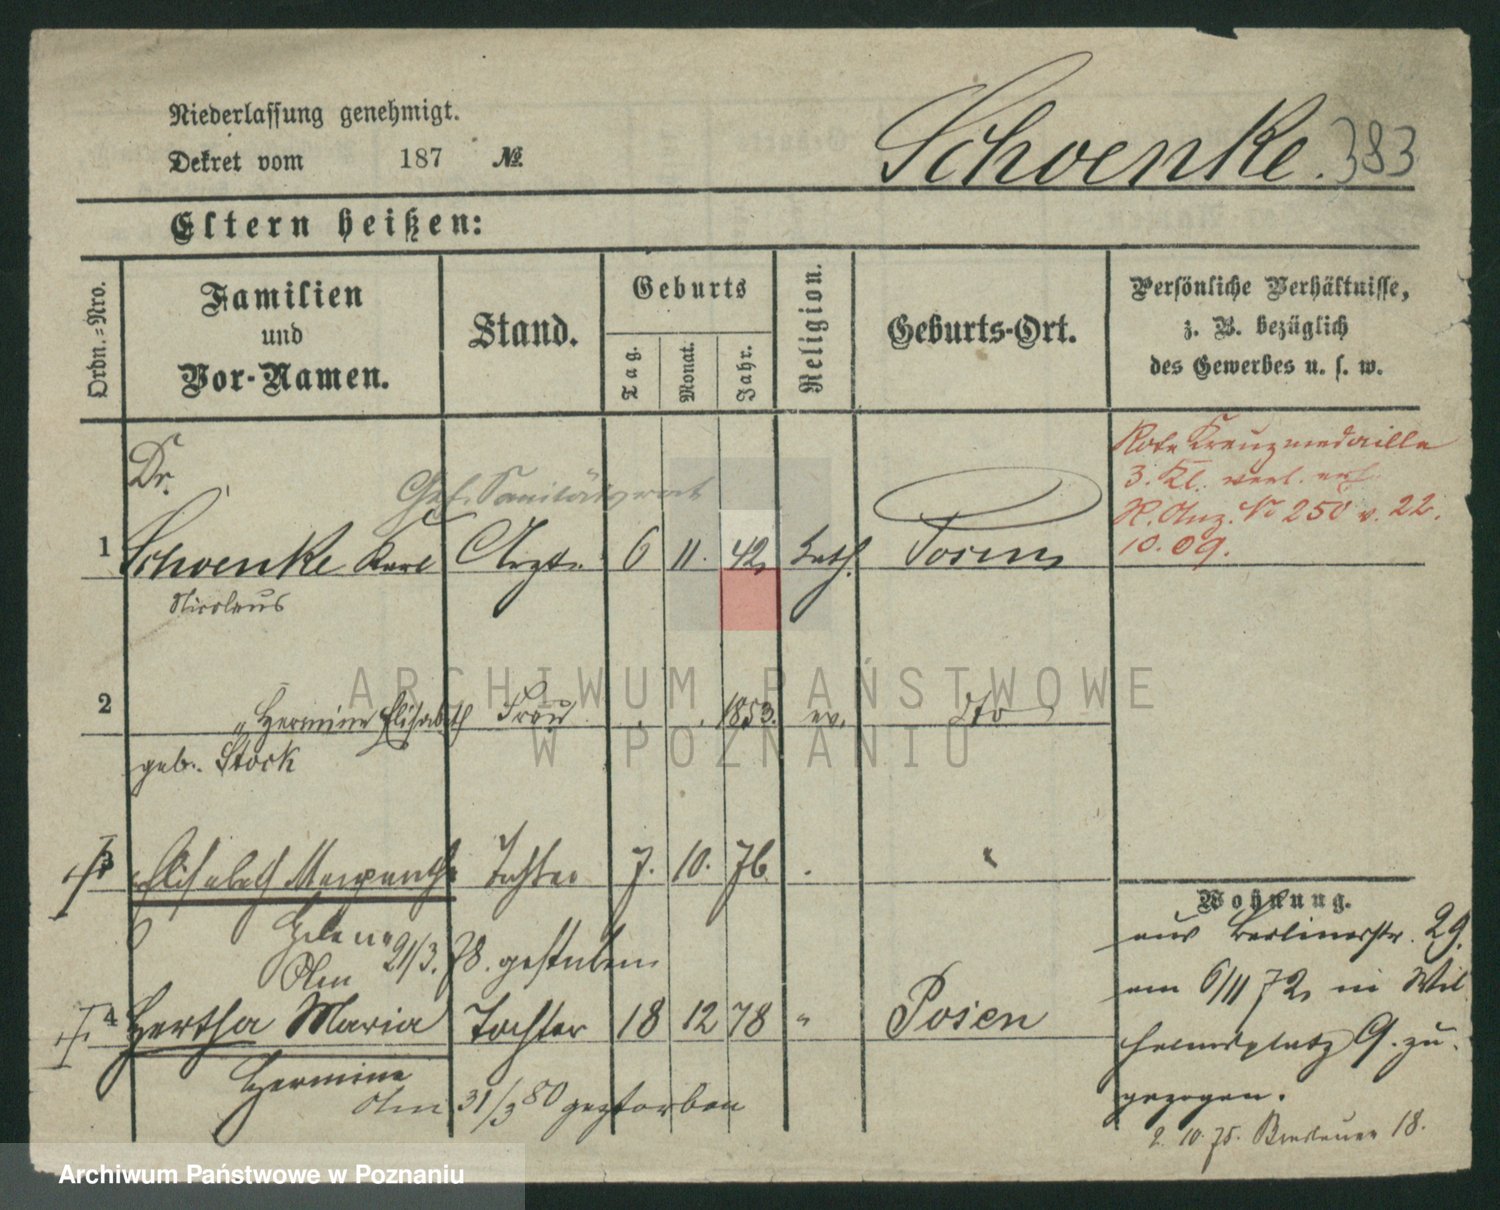 Niederlassung genehmigt.
Dekret vom 187 №
Schoenke. 383
Eltern heißen:
Ordn.=Nro.
Familien
und
Vor-Namen.
Stand.
Geburts
Tag.
Monat.
Jahr.
Religion.
Geburts-Ort.
Persönliche Verhältnisse,
z. B. bezüglich
des Gewerbes u. s. w.
Dr.
Geh. Sanitätsrat
1 Schoenke Karl Arzt 6 11. 42 kath. Posen
Nicolaus
Rote Kreuzmedaille
3. Kl. verl.
Anz. No 250 v. 22.
10. 09.
2 " Hermine Elisabeth Frau 1853. ev. dto
geb. Stock
3 Elisabeth Tochter 7. 10. 76
Helene
21/3. 78. gestorben
4 Hertha Maria Tochter 18 12 78 " Posen
Hermine
31/3 80 gestorben
Wohnung.
aus Berlinerstr. 29.
am 6/11 72 in Wil
helmsplatz 9. zu
gezogen.
2. 10. 75. Breslauer 18.
ARCHIWUM PAŃSTWOWE
W POZNANIU
Archiwum Państwowe w Poznaniu